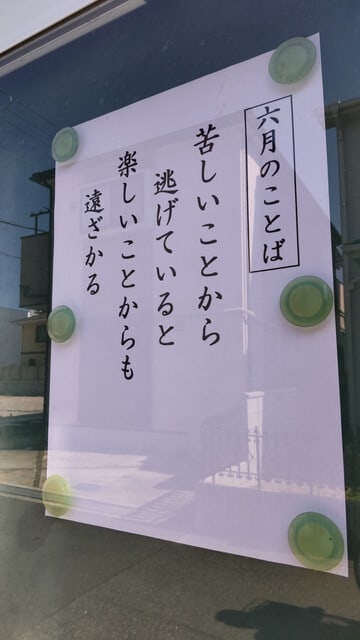 六月のことば
苦しいことから
逃げていると
楽しいことからも
遠ざかる